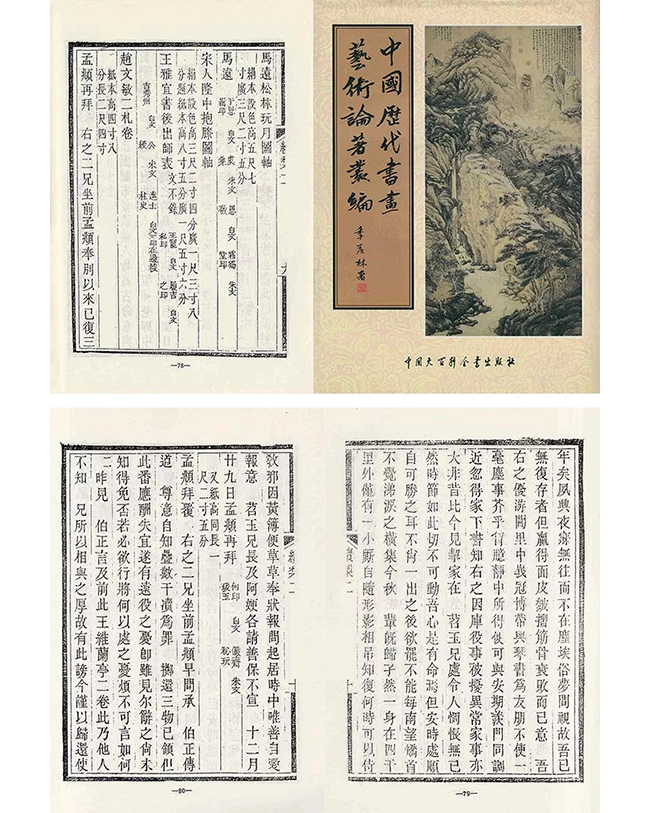 馬遠松林玩月圖軸
絹本設色高五尺七
寸廣三尺二寸五分
馬遠
宋人隆中抱膝圖軸
絹本設色高三尺二寸四分廣一尺三寸八
分題紙本高八寸五分廣一尺五寸六分
王雅宜書後出師表 文不錄 王寵私印 白文 履吉之印 白文
趙文敏二札卷
紙本高四寸八
分長二尺四寸
孟頫再拜 右之二兄坐前孟頫奉別以來已復三
—78—
中國歷代書畫
藝術論著叢編
季羨林署
中国大百科全书出版社
年矣夙興夜寐無往而不在塵埃俗夢間視故吾已
無復存者但羸得面皮皺摺筋骨衰敗而已意 吾
右之優游閭里中峩冠博帶與琴書為友朋不使一
毫塵事芥乎胸懷靜中所得便可與安期羨門同調
近忽得家下書知右之因庫役事被擾異常家事亦
大非昔比今見挈家在 苕玉兄處令人惘悵無已
然時節如此切不可動吾心是有命焉但安時處順
自可勝之耳不肖一出之後欲罷不能每南望矯首
不覺涕淚之橫集今秋 輩既歸孑然一身在四千
里外僅有一小廝自隨形影相吊知復何時可以侍
—79—
教邪因黃簿便草草奉狀報問起居時中唯善自愛
報意 苕玉兄長及阿嫂各請善保不宣 十二月
廿九日孟頫再拜
又紙本高同長一
尺二寸五分
孟頫拜覆 右之二兄坐前孟頫早間承 伯正傳
道 尊意自知疊數干瀆為罪 擲還三物已領但
此番應酬失宜遂有遠役之憂卽雖見尔辭之尚未
知得免否若必欲行將何以處之憂煩不可言如何
二昨見 伯正言及前此王維蘭亭二卷此乃他人
不知 兄所以相與之厚故有此謗今謹以歸還使
—80—